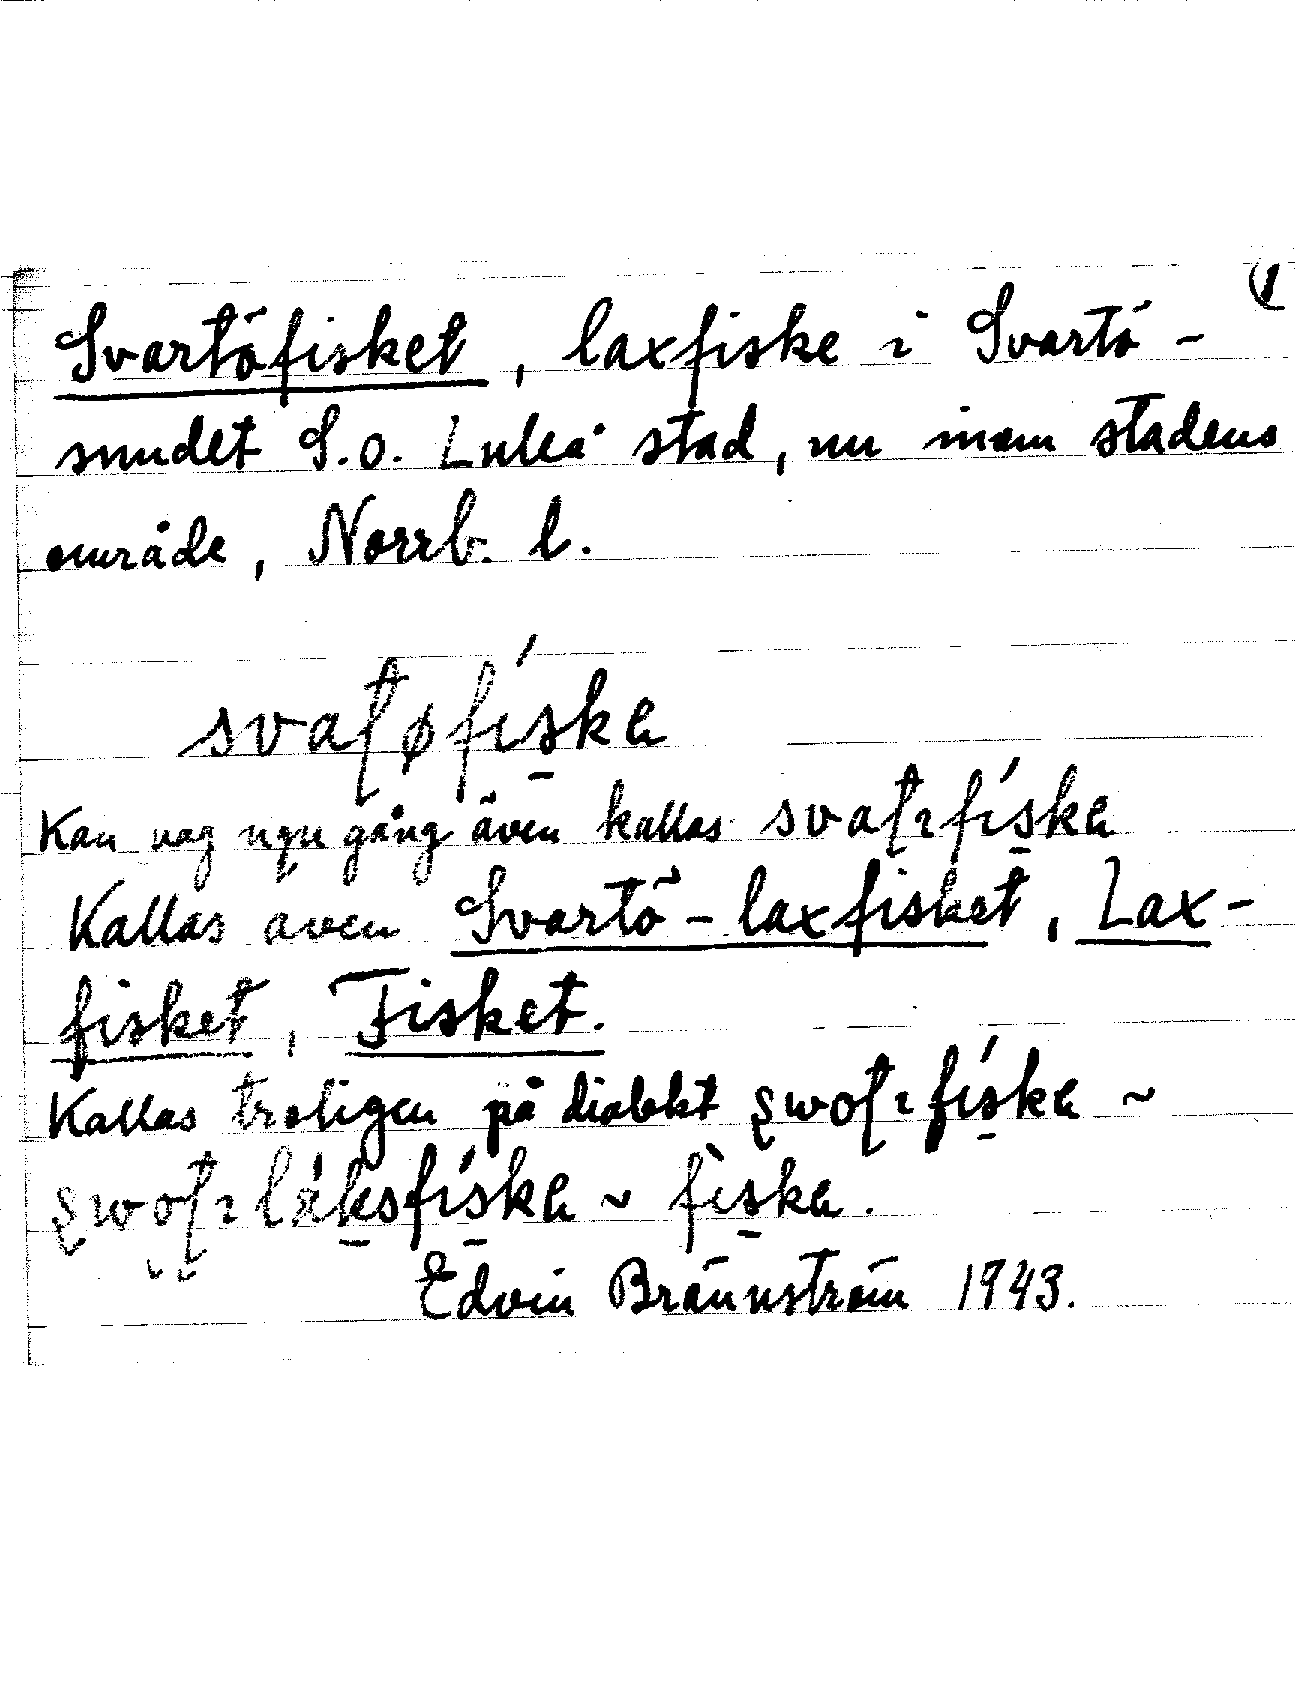 (1
Svartöfisket, laxfiske i Svartö-
sundet S.o. Luleå stad, nu inom stadens
område, Norrb. l.
svaʈøfíska
Kan nog ngn gång även kallas svaʈıfíska
Kallas även Svartö-laxfisket, Lax-
fisket, Fisket.
Kallas troligen på dialekt físka ~
~ fìska.
Edvin Brännström 1943.